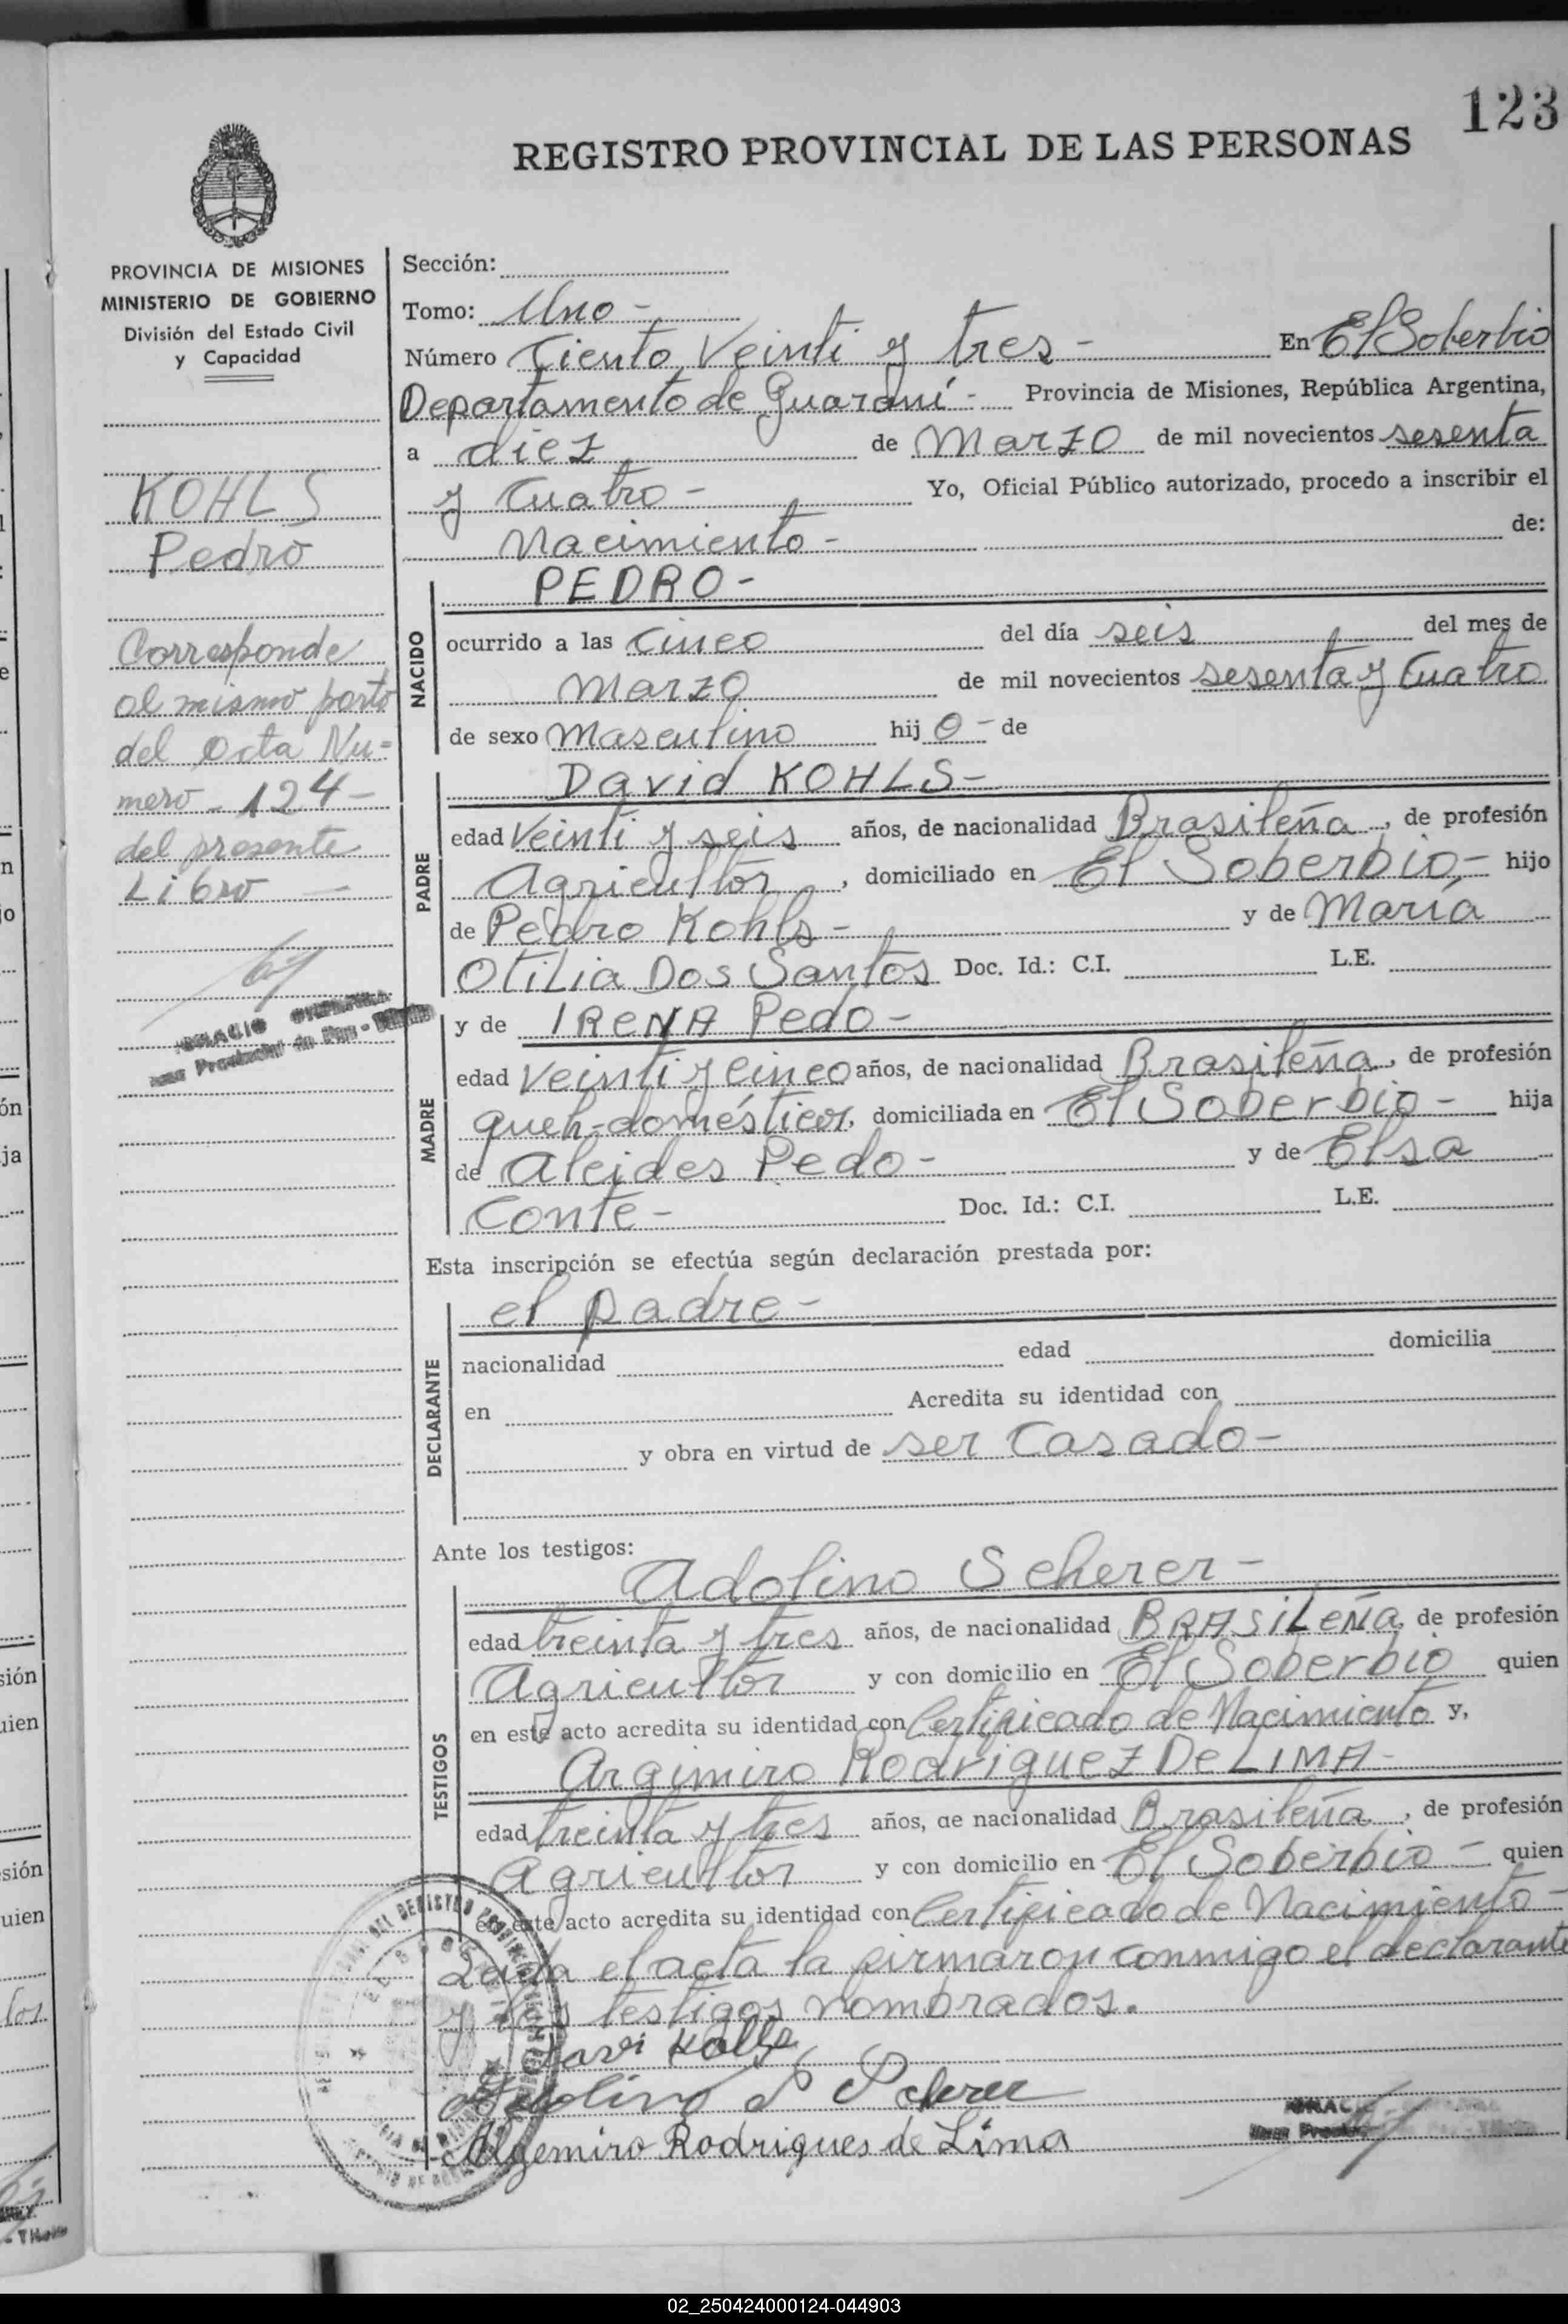 123
REGISTRO PROVINCIAL DE LAS PERSONAS
PROVINCIA DE MISIONES
MINISTERIO DE GOBIERNO
División del Estado Civil
y Capacidad
KOHLS
Pedro
Corresponde
al mismo parto
del Acta Nu=
mero - 124 -
del presente
Libro —
Sección:
Tomo: Uno -
Número Ciento Veinti y tres - En El Soberbio
Departamento de Guaraní - Provincia de Misiones, República Argentina,
a diez de Marzo de mil novecientos sesenta
y cuatro - Yo, Oficial Público autorizado, procedo a inscribir el
Nacimiento - de:
NACIDO
PEDRO -
ocurrido a las cinco del día seis del mes de
Marzo de mil novecientos sesenta y cuatro
de sexo Masculino hij o - de
PADRE
David KOHLS -
edad Veinti y seis años, de nacionalidad Brasileña, de profesión
Agricultor, domiciliado en El Soberbio - hijo
de Pedro Kohls - y de María
Otilia Dos Santos Doc. Id.: C.I. L.E.
MADRE
y de IRENA Pedo -
edad Veinti y cinco años, de nacionalidad Brasileña, de profesión
queh-domésticos, domiciliada en El Soberbio - hija
de Alcides Pedo - y de Elsa
Conte - Doc. Id.: C.I. L.E.
Esta inscripción se efectúa según declaración prestada por:
DECLARANTE
el padre -
nacionalidad edad domicilia
en Acredita su identidad con
y obra en virtud de ser Casado -
Ante los testigos:
TESTIGOS
Adolino Scherer -
edad treinta y tres años, de nacionalidad BRASILEÑA, de profesión
Agricultor y con domicilio en El Soberbio quien
en este acto acredita su identidad con Certificado de Nacimiento y,
Argimiro Rodriguez De LIMA -
edad treinta y tres años, de nacionalidad Brasileña, de profesión
Agricultor y con domicilio en El Soberbio - quien
en este acto acredita su identidad con Certificado de Nacimiento -
Leida el acta la firmaron conmigo el declarante
y los testigos nombrados.
Davi Kolls
Adolino S Scherer
Algemiro Rodrigues de Lima
02_250424000124-044903